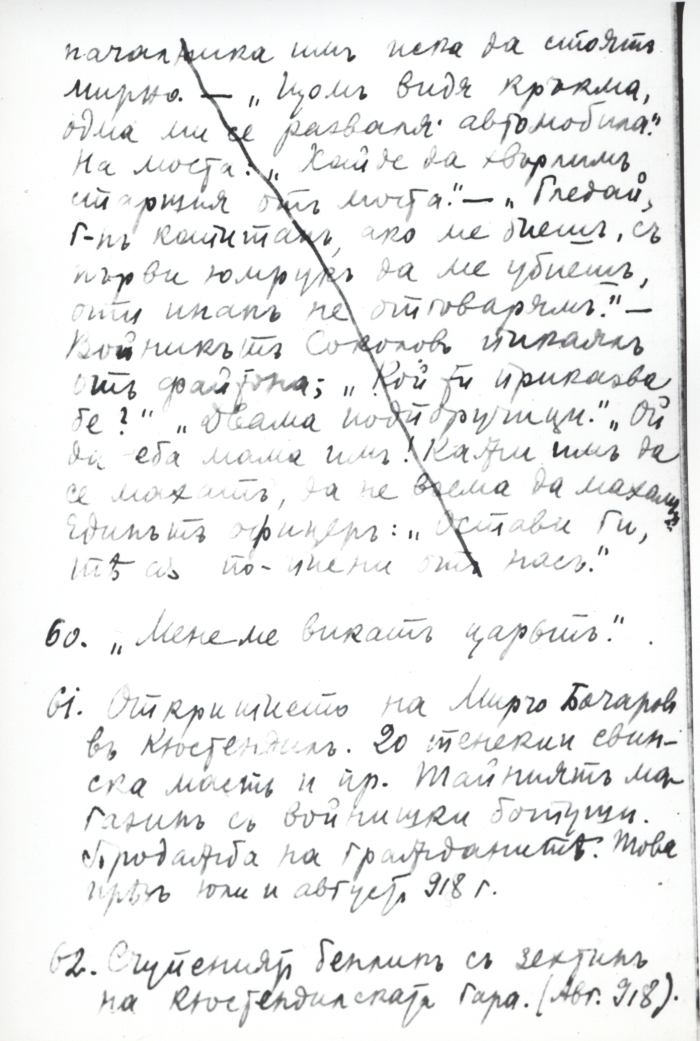 началника имъ иска да стоятъ
мирно. — „Щомъ видя кръкма,
одма ми се разваля автомобила."
На моста: „Хайде да хвърлимъ
старщия отъ моста." — „Гледай,
г-нъ капитанъ, ако ме биешъ, съ
първи юмрукъ да ме убиешъ,
оти инакъ не отговарямъ." —
Войникътъ Соколовъ
отъ файтона; „Кой ти приказва
бе?" „Двама подпоручици." „Ой
да еба мама имъ! Кажи имъ да
се махатъ, да не воема да махамъ
Единътъ офицеръ: „Остави ги,
тѣ съ по- отъ насъ."
60. „Мене ме викатъ царьтъ." .
61. Откритието на Мирчо Бочаровъ
въ Кюстендилъ. 20 тенекии свин-
ска мастъ и пр. Тайниятъ ма-
газинъ съ войнишки ботуши.
Продажба на гражданитѣ. Това
прѣзъ юли и августъ 918 г.
62. Счупениятъ бензинъ съ зехтинъ
на Кюстендилската гара. (Авг. 918).